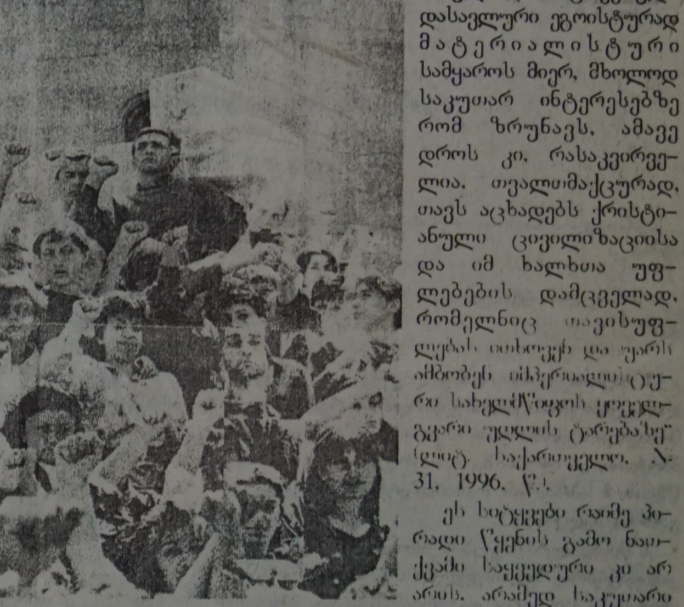 დასავლური ეგოისტურად
მატერიალისტური
სამყაროს მიერ, მხოლოდ
საკუთარ ინტერესებზე
რომ ზრუნავს. ამავე
დროს კი, რასაკვირვე–
ლია, თვალთმაქცურად,
თავს აცხადებს ქრისტი–
ანული ცივილიზაციისა
და იმ ხალხთა უფ–
ლებების დამცველად,
რომელნიც თავისუფ–
ლებას ითხოვენ და უარს
ამბობენ იმპერიალისტუ–
რი სახელმწიფოს ყოველ–
გვარი უღლის ტარებაზე"
ლიტ. საქართველო, N
31, 1996, წ.).
ეს სიტყვები რაიმე პი–
რადი წყენის გამო ნათ–
ქვამი საყვედური კი არ
არის, არამედ საკუთარი